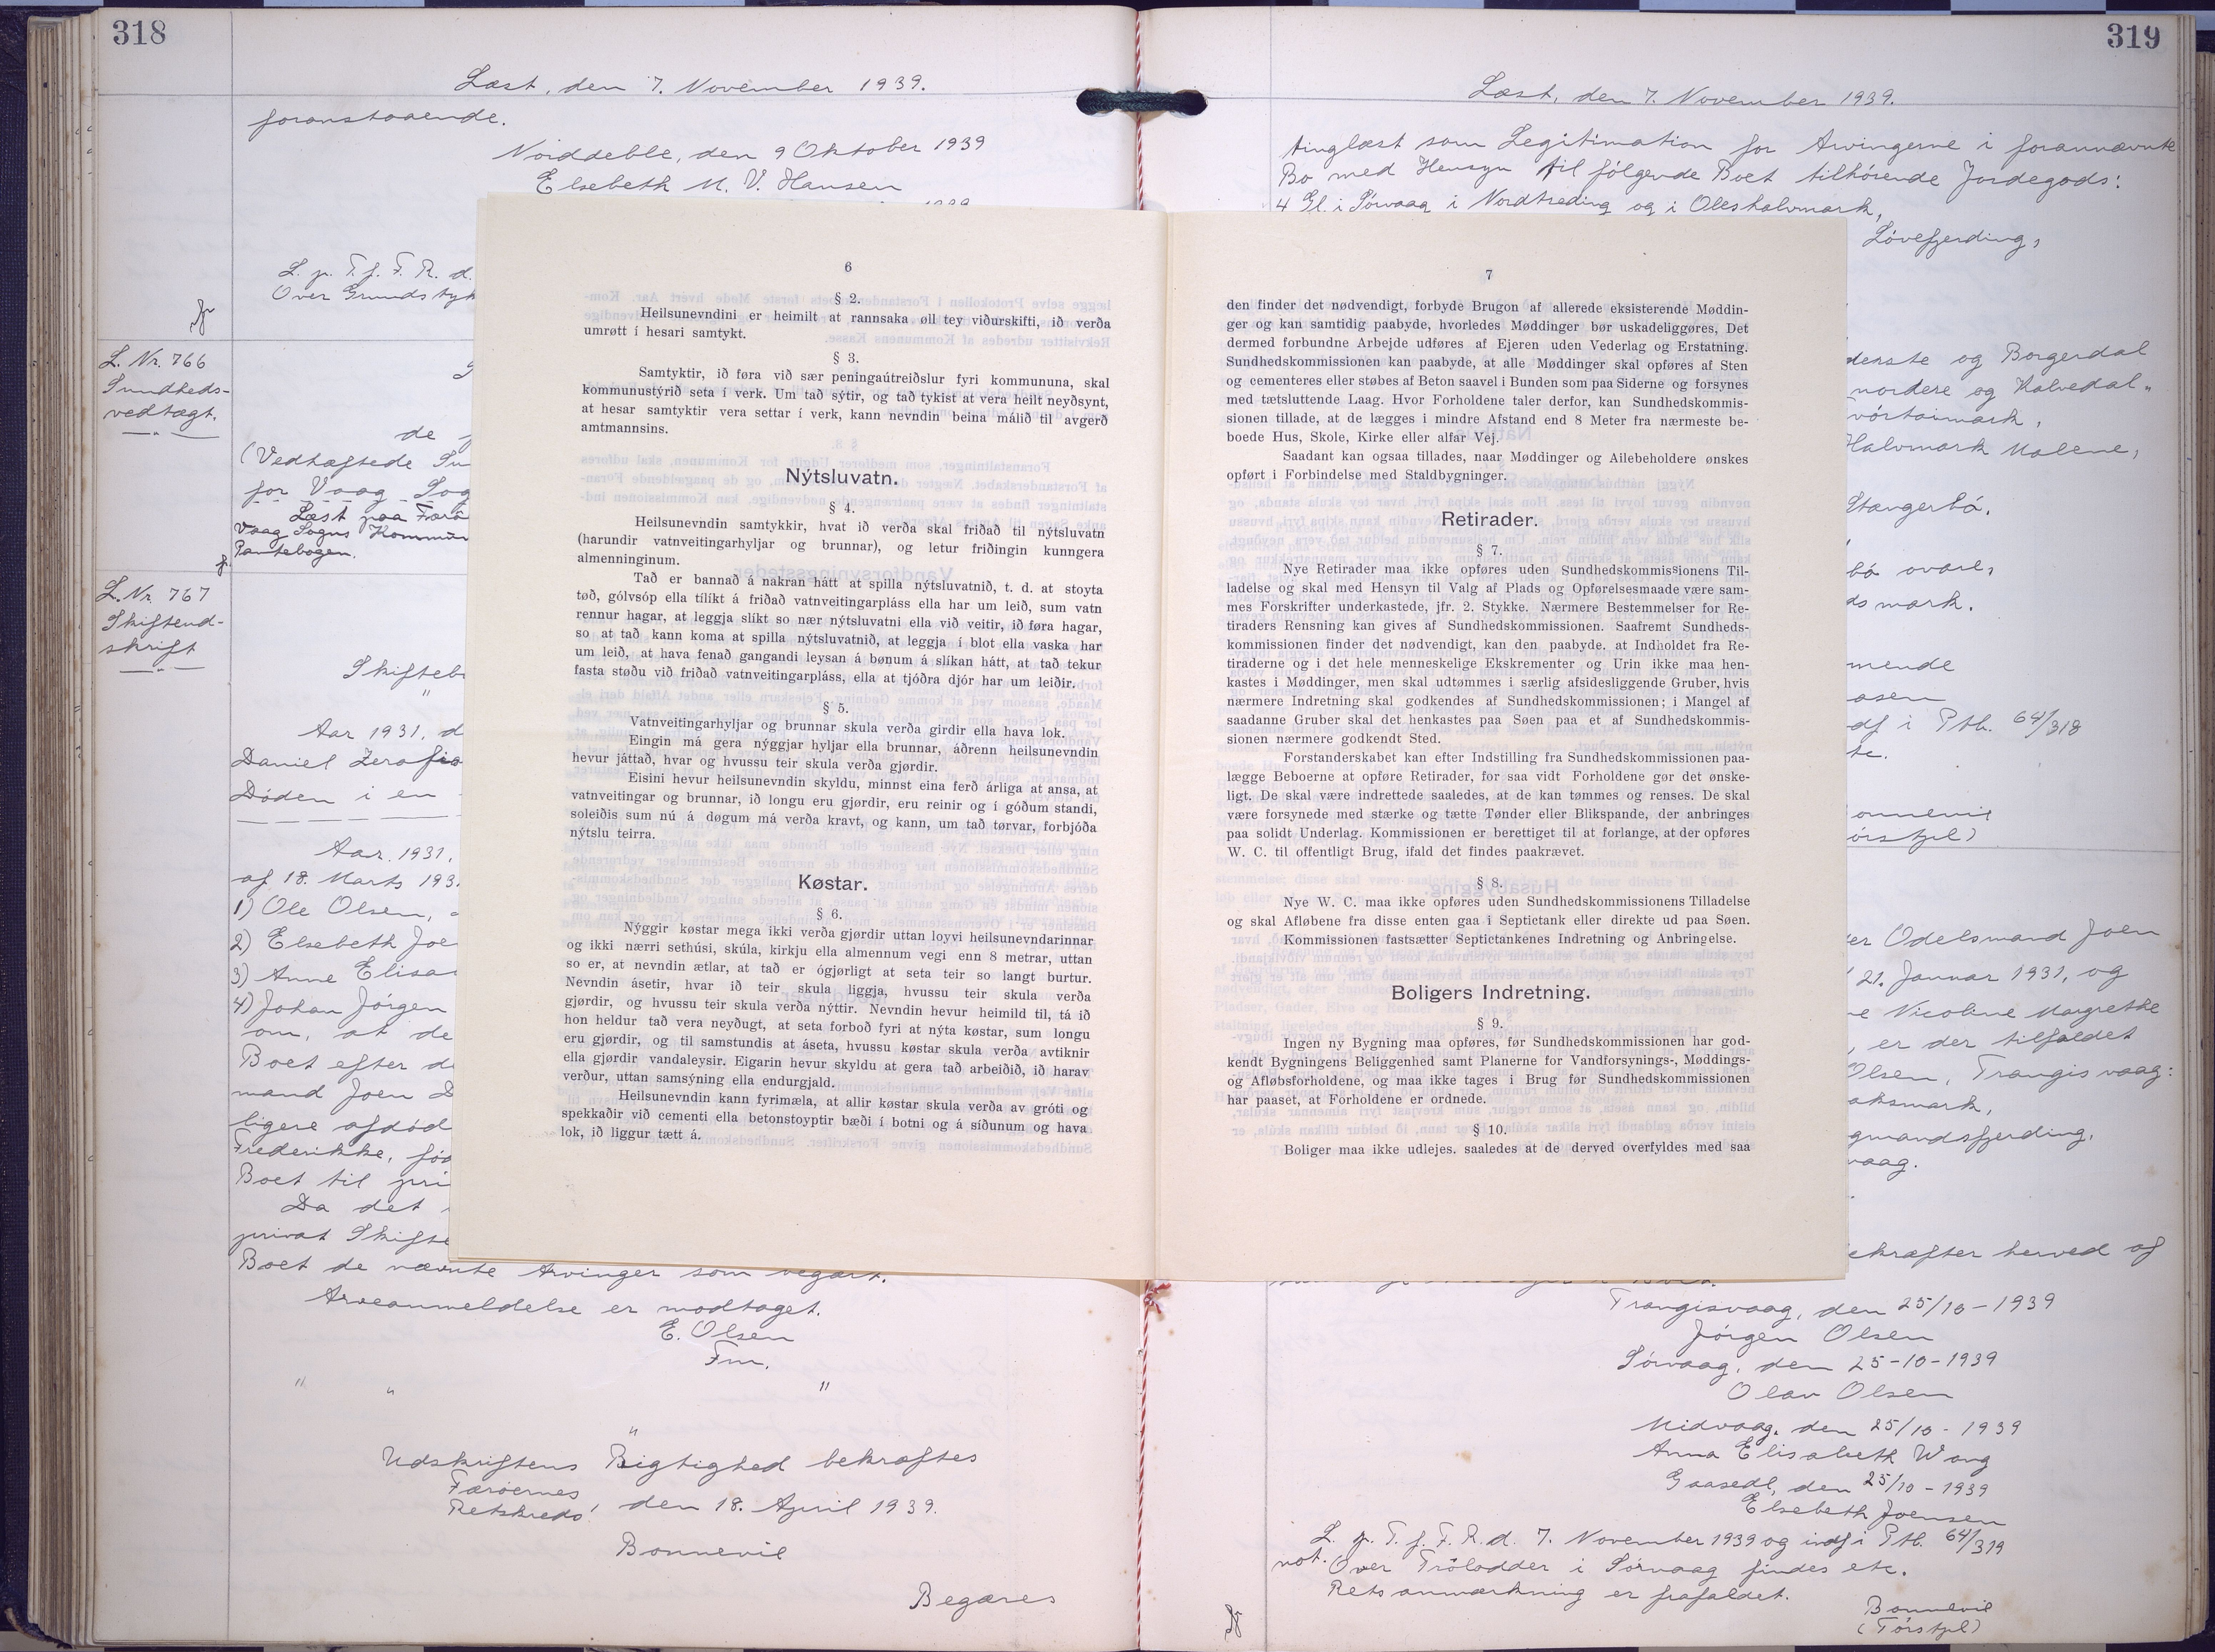 318
Læst, den 7. November 1939.
foranstaaende.
Norddeble, den 9 Oktober 1939
Elsebeth M. V. Hansen
L. p. T. f. F. R. d.
Over Grundstyk
L. Nr. 766
Sundheds-
vedtægt.
de
(Vedhæftede Su
for Vaag Sog
Læst paa Færø
Vaag Sogns Kommun
Pantebogen.
L. Nr. 767
Skifteud-
skrift
Skifteb
Aar 1931, d
Daniel Zerafia
Døden i en
Aar. 1931,
af 18. Marts 193
1) Ole Olsen,
2) Elsebeth Joe
3) Anne Elisa
4) Johan Jørgen
om, at de
Boet efter d
mand Joen D
ligere afdød
Frederikke, fød
Boet til pri
Da det
privat Skifte
Boet de nævnte Arvinger som begært.
Arveanmeldelse er modtaget.
E. Olsen
Fm.
" " "
"
Udskriftens Rigtighed bekræftes
Færøernes
Retskreds, den 18. April 1939.
Bonnevil
Begæres
6
§ 2.
Heilsunevndini er heimilt at rannsaka øll tey viðurskifti, ið verða
umrøtt í hesari samtykt.
§ 3.
Samtyktir, ið føra við sær peningaútreiðslur fyri kommununa, skal
kommunustýrið seta í verk. Um tað sýtir, og tað tykist at vera heilt neyðsynt,
at hesar samtyktir vera settar í verk, kann nevndin beina málið til avgerð
amtmannsins.
Nýtsluvatn.
§ 4.
Heilsunevndin samtykkir, hvat ið verða skal friðað til nýtsluvatn
(harundir vatnveitingarhyljar og brunnar), og letur friðingin kunngera
almenninginum.
Tað er bannað á nakran hátt at spilla nýtsluvatnið, t. d. at stoyta
tøð, gólvsóp ella tílíkt á friðað vatnveitingarpláss ella har um leið, sum vatn
rennur hagar, at leggja slíkt so nær nýtsluvatni ella við veitir, ið føra hagar,
so at tað kann koma at spilla nýtsluvatnið, at leggja í blot ella vaska har
um leið, at hava fenað gangandi leysan á bønum á slíkan hátt, at tað tekur
fasta støðu við friðað vatnveitingarpláss, ella at tjóðra djór har um leiðir.
§ 5.
Vatnveitingarhyljar og brunnar skula verða girdir ella hava lok.
Eingin má gera nýggjar hyljar ella brunnar, áðrenn heilsunevndin
hevur játtað, hvar og hvussu teir skula verða gjørdir.
Eisini hevur heilsunevndin skyldu, minnst eina ferð árliga at ansa, at
vatnveitingar og brunnar, ið longu eru gjørdir, eru reinir og í góðum standi,
soleiðis sum nú á døgum má verða kravt, og kann, um tað tørvar, forbjóða
nýtslu teirra.
Køstar.
§ 6.
Nýggir køstar mega ikki verða gjørdir uttan loyvi heilsunevndarinnar
og ikki nærri sethúsi, skúla, kirkju ella almennum vegi enn 8 metrar, uttan
so er, at nevndin ætlar, at tað er ógjørligt at seta teir so langt burtur.
Nevndin ásetir, hvar ið teir skula liggja, hvussu teir skula verða
gjørdir, og hvussu teir skula verða nýttir. Nevndin hevur heimild til, tá ið
hon heldur tað vera neyðugt, at seta forboð fyri at nýta køstar, sum longu
eru gjørdir, og til samstundis at áseta, hvussu køstar skula verða avtiknir
ella gjørdir vandaleysir. Eigarin hevur skyldu at gera tað arbeiðið, ið harav
verður, uttan samsýning ella endurgjald.
Heilsunevndin kann fyrimæla, at allir køstar skula verða av gróti og
spekkaðir við cementi ella betonstoyptir bæði í botni og á síðunum og hava
lok, ið liggur tætt á.
7
den finder det nødvendigt, forbyde Brugon af allerede eksisterende Møddin-
ger og kan samtidig paabyde, hvorledes Møddinger bør uskadeliggøres, Det
dermed forbundne Arbejde udføres af Ejeren uden Vederlag og Erstatning.
Sundhedskommissionen kan paabyde, at alle Møddinger skal opføres af Sten
og cementeres eller støbes af Beton saavel i Bunden som paa Siderne og forsynes
med tætsluttende Laag. Hvor Forholdene taler derfor, kan Sundhedskommis-
sionen tillade, at de lægges i mindre Afstand end 8 Meter fra nærmeste be-
boede Hus, Skole, Kirke eller alfar Vej.
Saadant kan ogsaa tillades, naar Møddinger og Ailebeholdere ønskes
opført i Forbindelse med Staldbygninger.
Retirader.
§ 7.
Nye Retirader maa ikke opføres uden Sundhedskommissionens Til-
ladelse og skal med Hensyn til Valg af Plads og Opførelsesmaade være sam-
mes Forskrifter underkastede, jfr. 2. Stykke. Nærmere Bestemmelser for Re-
tiraders Rensning kan gives af Sundhedskommissionen. Saafremt Sundheds-
kommissionen finder det nødvendigt, kan den paabyde. at Indholdet fra Re-
tiraderne og i det hele menneskelige Ekskrementer og Urin ikke maa hen-
kastes i Møddinger, men skal udtømmes i særlig afsidesliggende Gruber, hvis
nærmere Indretning skal godkendes af Sundhedskommissionen; i Mangel af
saadanne Gruber skal det henkastes paa Søen paa et af Sundhedskommis-
sionen nærmere godkendt Sted.
Forstanderskabet kan efter Indstilling fra Sundhedskommissionen paa-
lægge Beboerne at opføre Retirader, for saa vidt Forholdene gør det ønske-
ligt. De skal være indrettede saaledes, at de kan tømmes og renses. De skal
være forsynede med stærke og tætte Tønder eller Blikspande, der anbringes
paa solidt Underlag. Kommissionen er berettiget til at forlange, at der opføres
W. C. til offentligt Brug, ifald det findes paakrævet.
§ 8.
Nye W. C. maa ikke opføres uden Sundhedskommissionens Tilladelse
og skal Afløbene fra disse enten gaa i Septictank eller direkte ud paa Søen.
Kommissionen fastsætter Septictankenes Indretning og Anbringelse.
Boligers Indretning.
§ 9.
Ingen ny Bygning maa opføres, før Sundhedskommissionen har god-
kendt Bygningens Beliggenhed samt Planerne for Vandforsynings-, Møddings-
og Afløbsforholdene, og maa ikke tages i Brug før Sundhedskommissionen
har paaset, at Forholdene er ordnede.
§ 10.
Boliger maa ikke udlejes. saaledes at de derved overfyldes med saa
319
Læst, den 7. November 1939.
tinglæst som Legitimation for Arvingerne i forannævnte
Bo med Hensyn til følgende Boet tilhørende Jordegods:
4 Gl. i Sørvaag i Nordtreding og i Oleshalvmark,
Løvefjerding,
denste og Borgerdal
nordere og Kalvedal-
vørtaimark,
Halvmark Malene,
Stangerbø.
bø ovare,
ds mark.
mende
asen
df i Ptb. 64/318
te.
onnevil
ørstfjl)
er Odelsmand Joen
21. Januar 1931, og
e Nicoline Margrethe
, er der tilfaldet
Olsen, Trangisvaag:
aksmark,
gmandsfjerding,
vaag.
ekræfter herved af
Trangisvaag, den 25/10-1939
Jørgen Olsen
Sørvaag, den 25-10-1939
Olav Olsen
Midvaag, den 25/10-1939
Anna Elisabeth Wang
Gaasedl, den 25/10-1939
Elsebeth Joensen
L. p. T. f. F. R. d. 7. November 1939 og indf i Ptb. 64/319
not. Over Trölodder i Sørvaag findes etc.
Retsanmærkning er frafaldet.
Bonnevil
(Førstfjl)